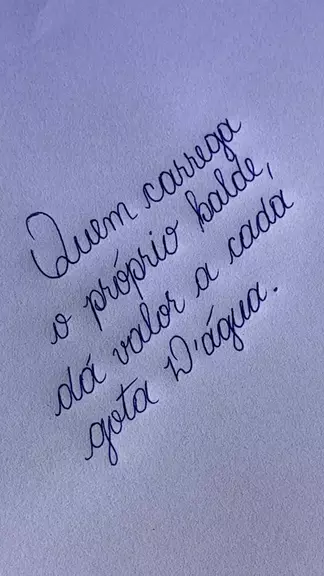 Quem carrega
o próprio balde,
dá valor a cada
gota D'água.